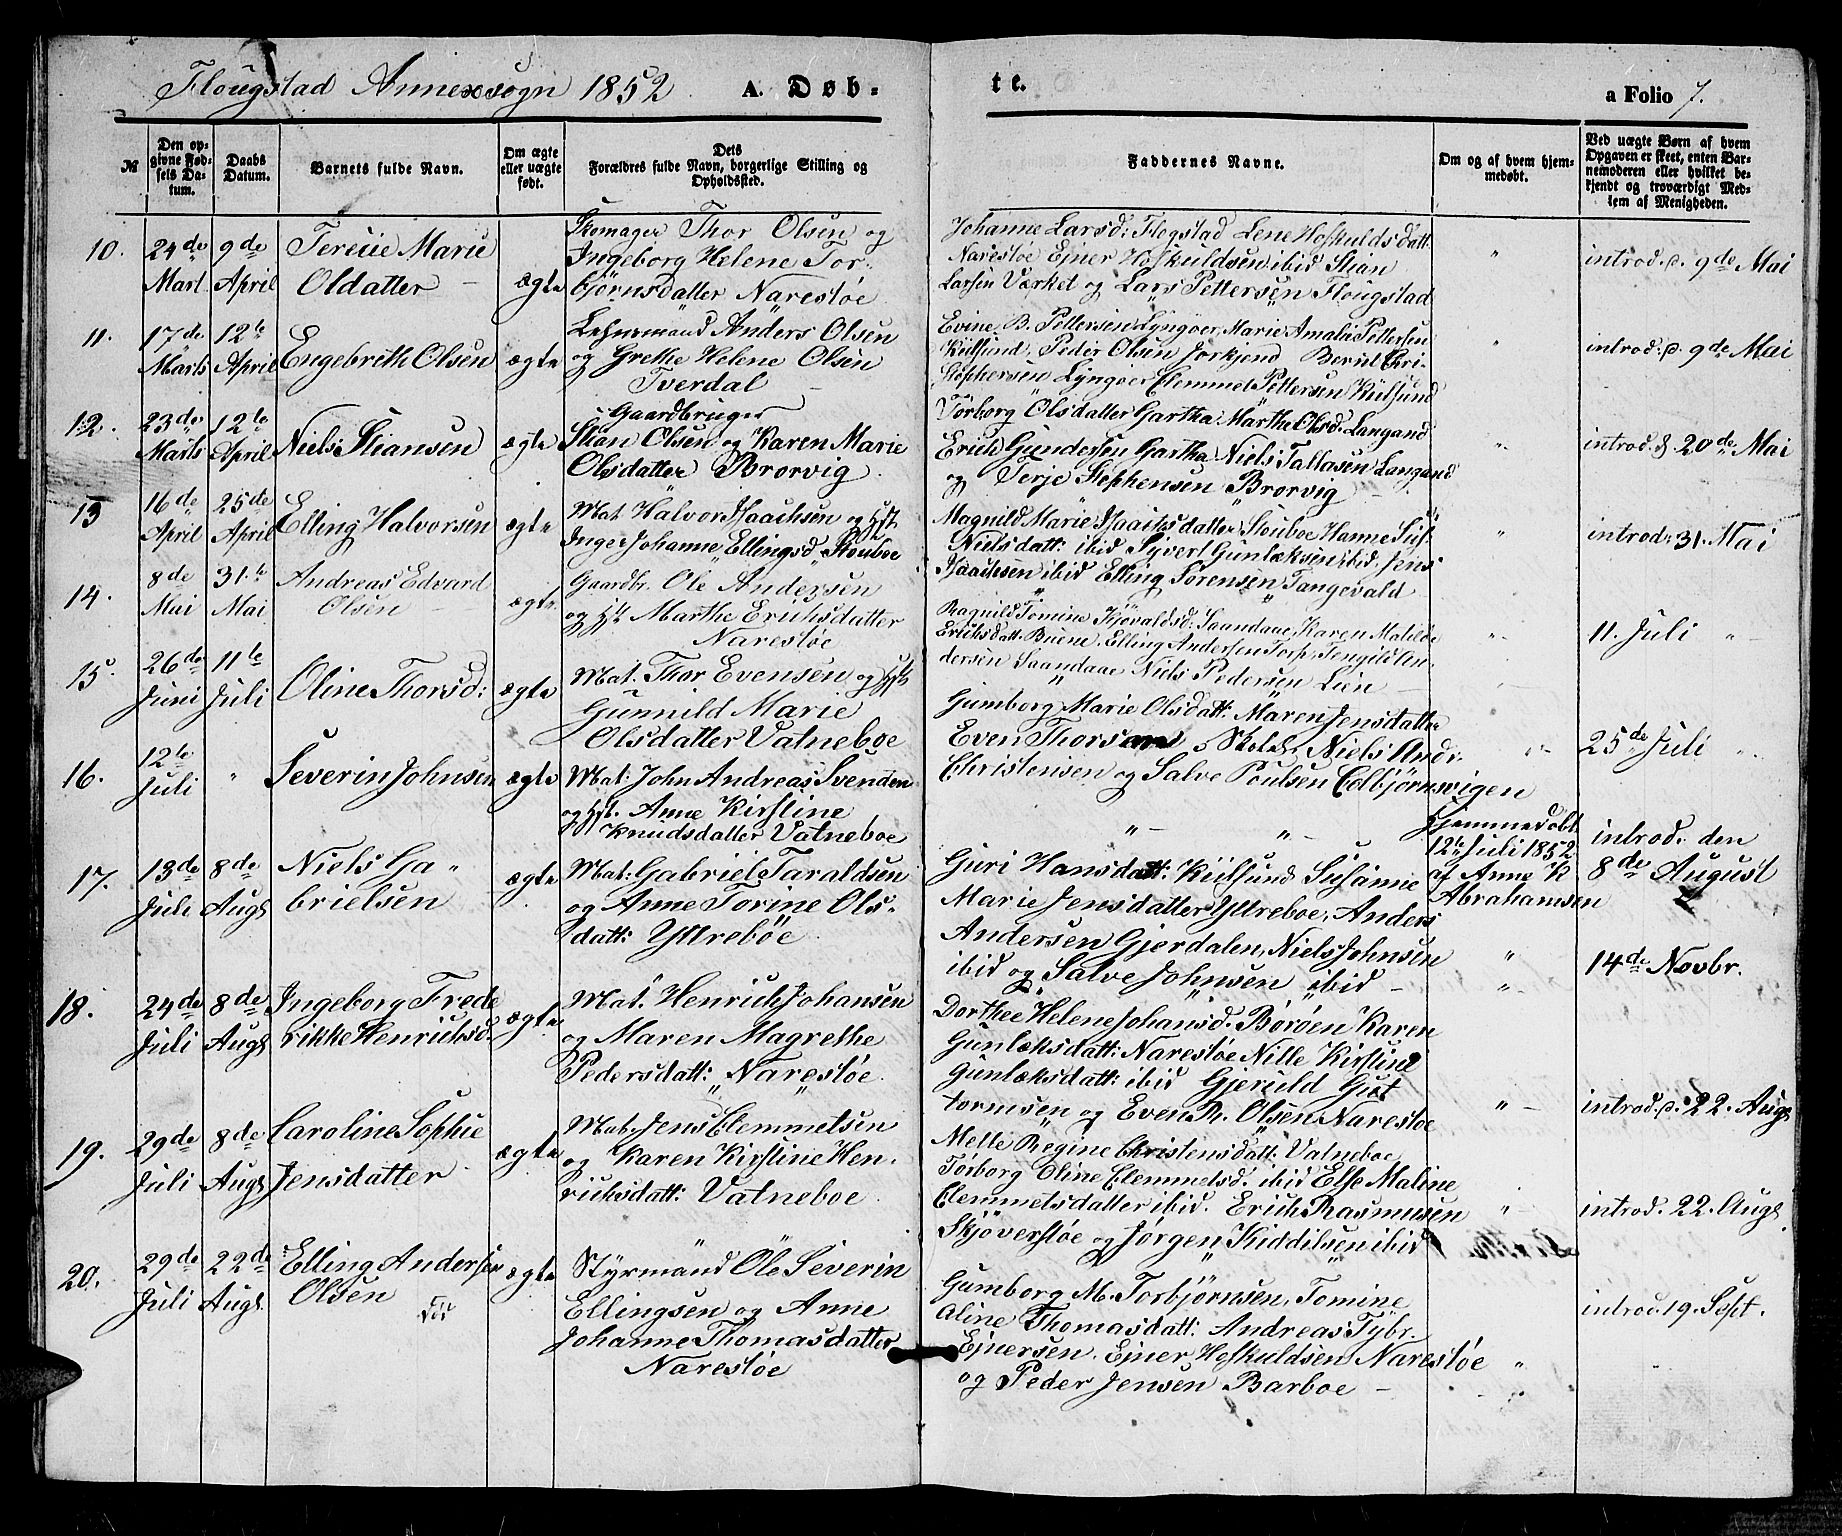 Flougstad Annexsogn 1852 A. Døb-
te.
a Folio 7.
№
Den op-
givne Fød-
sels Da-
tum.
Daabs
Datum.
Barnets fulde Navn.
Om ægte
eller uægte
født.
Dets
Forældres fulde Navn, borgerlige Stilling og
Opholdssted.
Faddernes Navne.
Om og af hvem hjem-
medøbt.
Ved uægte Børn af hvem
Opgaven er skeet, enten Bar-
nemoderen eller hvilket be-
kjendt og troværdigt Med-
lem af Menigheden.
10.
24de
Mart
9de
April
Terene Marie
Oldatter
ægte
Skomager Thor Olsen og
Ingeborg Helene Tor-
bjørnsdatter Narestøe
Johanne Larsd: Flogstad Lene Hofkuldsdatt.
Narestøe Ejner Hofkuldsen ibid Stian
Larsen Værket og Lars Pettersen Flougstad
"
introd. d. 9de Mai
11.
17de
Marts
12te
April
Engebreth Olsen
ægte
Lehnsmand Anders Olsen
og Grethe Helene Olsen
Tverdal
Evine B. Pettersen Lyngøer, Marie Amalie Pettersen
Kiilsund Peder Olsen Jorkjend Bernt Chri-
stophersen Lyngøer Clemmet Pettersen Kiilsund
"
introd: d. 9de Mai
12.
23de
Marts
12te
April
Niels Stiansen
ægte
Gaardbruger
Stian Olsen og Karen Marie
Olsdatter Brorvig
Torborg Olsdatter Gartha Marthe Olsd. Langand
Erich Gundersen Gartha Niels Tallasen Langand
og Terje Stephensen Brorvig
"
introd. d 20de Mai
13
16de
April
25de
April
Elling Halvorsen
ægte
Mat. Halvor Isaachsen og Hst.
Inger Johanne Ellingsd. Skouboe
Magnild Marie Isaachsdatter Skouboe Hanne Sus.
Nielsdatt: ibid Syvert Gunlæksen ibid. Jens
Isaachsen ibid Elling Sørensen Tangevald
"
introd: 31. Mai
14.
8de
Mai
31.te
Mai
Andreas Edvard
Olsen
ægte
Gaardbr. Ole Andersen
og Hst. Marthe Erichsdatter
Narestøe
Ragnild Tomine Kjøvaldsd: Saandaae, Karen Matilde
Erichsdatt. Buene. Elling Andersen Torp, Tengild An-
dersen Saandaae Niels Pedersen Lien
"
11. Juli "
15.
26de
Juni
11te
Juli
Oline Thorsd:
ægte
Mat. Thor Evensen og Hst.
Gunnild Marie
Olsdatter Vatneboe
Gumborg Marie Olsdatt. Maren Jensdatter
Even Thorsen Niels Andr.
Christensen og Salve Poulsen Edbjørnsvigen
"
25de Juli "
16.
12te
Juli
"
Severin Johnsen
ægte
Mat: John Andreas Svendsen
og Hst. Anne Kirstine
Knudsdatter Vatneboe
" "
Hjemmedøbt
12te Juli 1852
af Anne K
Abrahamsen
introd. den
8de August
17.
13de
Juli
8de
Augs
Niels Ga "
brielsen
ægte
Mat: Gabriel Taraldsen
og Anne Torine Ols-
datt: Yttrebøe
Guri Hansdatt: Kiilsund Susanne
Marie Jensdatter Yttreboe, Anders
Andersen Gjerdalen, Niels Johnsen
ibid og Salve Johnsen ibid
"
14de Novbr.
18.
24de
Juli
8de
Augs
Ingeborg Frede
rikke Henrichsd.
ægte
Mat. Henrich Johansen
og Maren Magrethe
Pedersdatt: Narestøe
Dorthee Helene Johansd. Børøen Karen
Gunlæksdatt: Narestøe Nille Kirstine
Gunlæksdatt: ibid Gjeruld Gut
tormsen og Even R. Olsen Narestøe
"
introd. d. 22. Augs
19.
29de
Juli
8de
Augs
Caroline Sophie
Jensdatter
ægte
Mat. Jens Clemmetsen
og Karen Kirstine Hen-
richsdatt: Vatneboe
Mette Regine Christensdatt. Vatneboe
Torborg Oline Clemmetsd. ibid Else Maline
Clemmetsdatter ibid. Erich Rasmusen
Skjøverstøe og Jørgen Kiddilsen ibid
"
introd. 22. Augs
20.
29de
Juli
22de
Augs.
Elling Andersen
Olsen
ægte
Styrmand Ole Severin
Ellingsen og Anne
Johanne Thomasdatter
Narestøe
Gumborg M. Torbjørnsen, Tomine
Aline Thomasdatt: Andreas Tybr.
Ejnersen. Ejner Hofkuldsen Narestøe
og Peder Jensen Barboe
"
introd. 19. Sept.